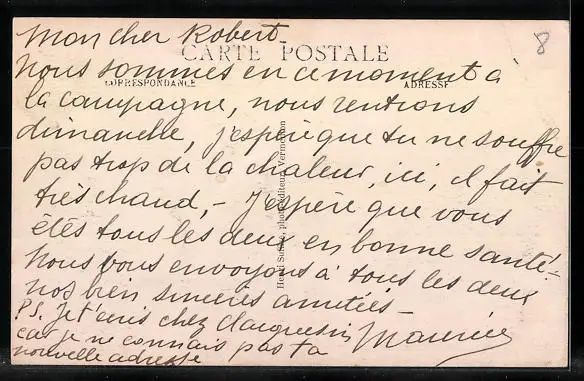 Mon cher Robert
CARTE POSTALE
Nous sommes en ce moment à
CORRESPONDANCE
ADRESSE
la campagne, nous rentrons
dimanche, j'espère que tu ne souffre
pas trop de la chaleur, ici, il fait
très chaud, - J'espère que vous
étes tous les deux en bonne santé -
Nous vous envoyons à tous les deux
nos bien sincères amitiés -
P.S. Je t'écris chez
Maurice
car je ne connais pas ta
nouvelle adresse
photo-éditeur, Vermenton
8